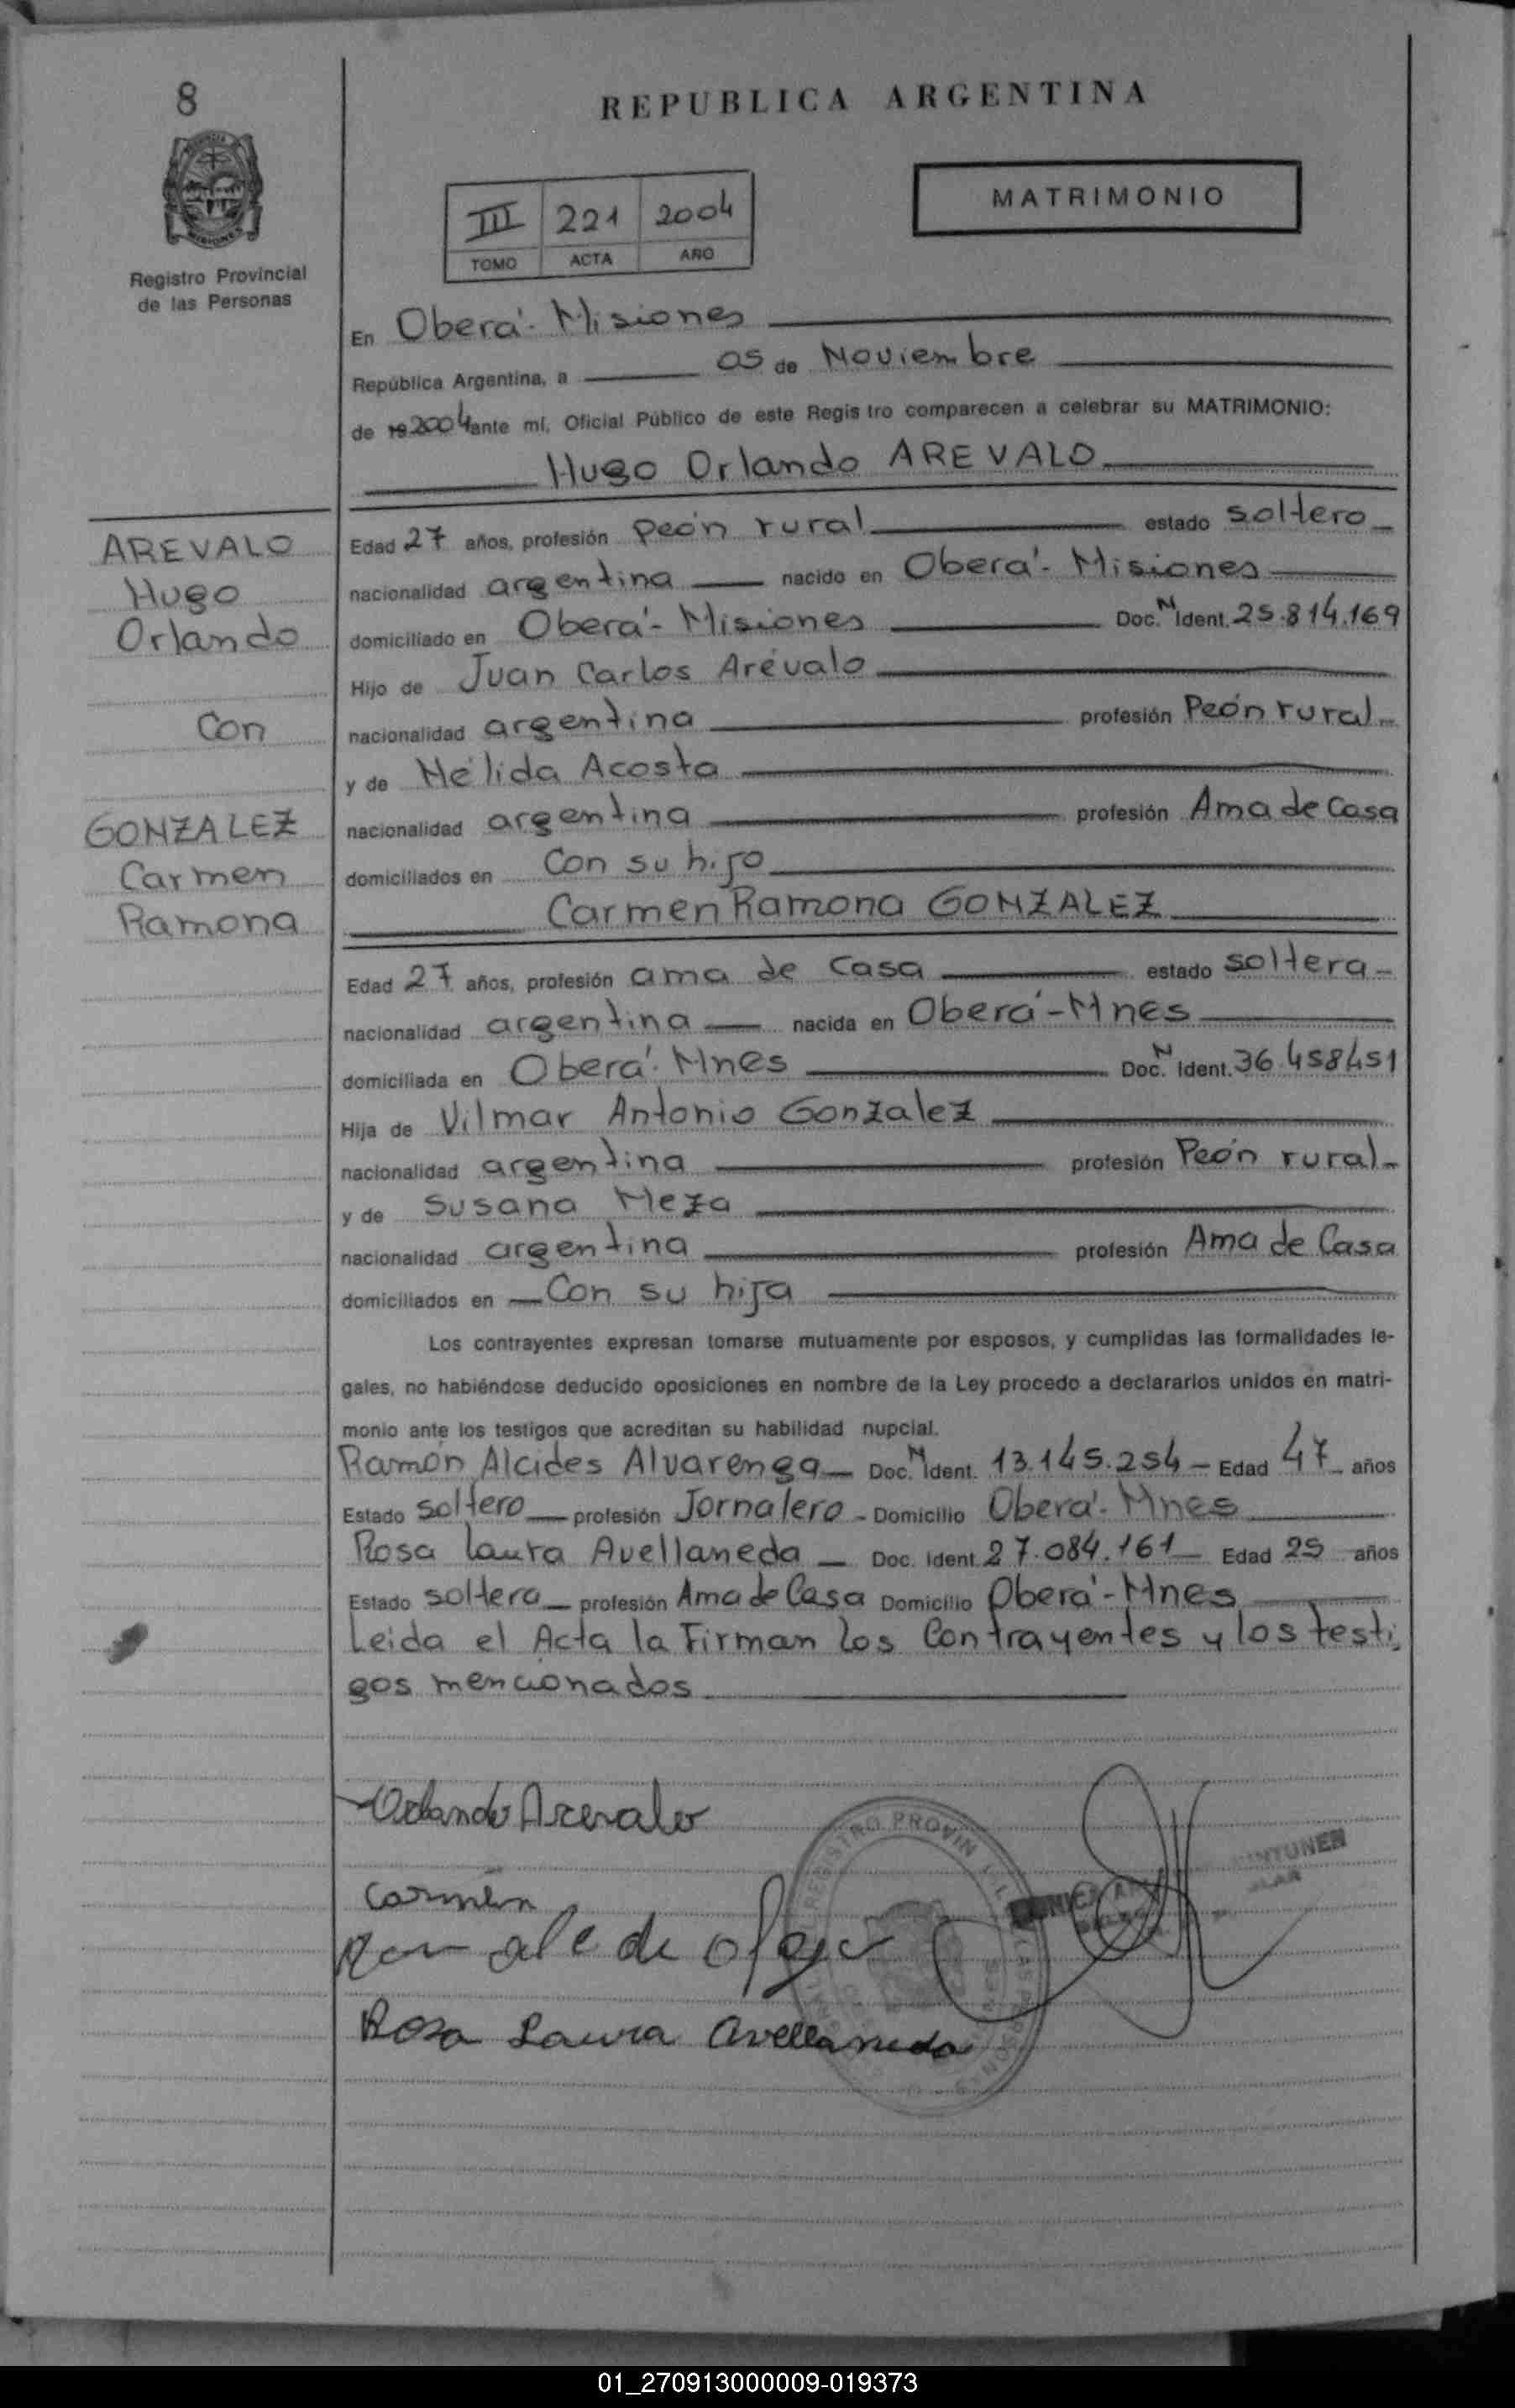 8
REPUBLICA ARGENTINA
MATRIMONIO
III 221 2004
TOMO ACTA AÑO
Registro Provincial
de las Personas
En Oberá - Misiones
República Argentina, a 05 de Noviembre
de 19 2004 ante mí, Oficial Público de este Registro comparecen a celebrar su MATRIMONIO:
Hugo Orlando AREVALO
AREVALO
Hugo
Orlando
Con
GONZALEZ
Carmen
Ramona
Edad 27 años, profesión Peón rural estado soltero
nacionalidad argentina nacido en Oberá - Misiones
domiciliado en Oberá - Misiones Doc. N Ident. 25.814.169
Hijo de Juan Carlos Arévalo
nacionalidad argentina profesión Peón rural
y de Nélida Acosta
nacionalidad argentina profesión Ama de Casa
domiciliados en Con su hijo
Carmen Ramona GONZALEZ
Edad 27 años, profesión ama de casa estado soltera
nacionalidad argentina nacida en Oberá - Mnes
domiciliada en Oberá - Mnes Doc. N Ident. 36.458451
Hija de Vilmar Antonio Gonzalez
nacionalidad argentina profesión Peón rural
y de Susana Meza
nacionalidad argentina profesión Ama de Casa
domiciliados en Con su hija
Los contrayentes expresan tomarse mutuamente por esposos, y cumplidas las formalidades le-
gales, no habiéndose deducido oposiciones en nombre de la Ley procedo a declararlos unidos en matri-
monio ante los testigos que acreditan su habilidad nupcial.
Ramón Alcides Alvarenga Doc. N Ident. 13.145.254 - Edad 47 años
Estado soltero profesión Jornalero - Domicilio Oberá - Mnes
Rosa Laura Avellaneda Doc. Ident. 27.084.161 Edad 25 años
Estado soltera profesión Ama de Casa Domicilio Oberá - Mnes
Leida el Acta la Firman los Contrayentes y los testi
gos mencionados
Orlando Arevalo
Carmen
Rosa Laura Avellaneda
01_270913000009-019373